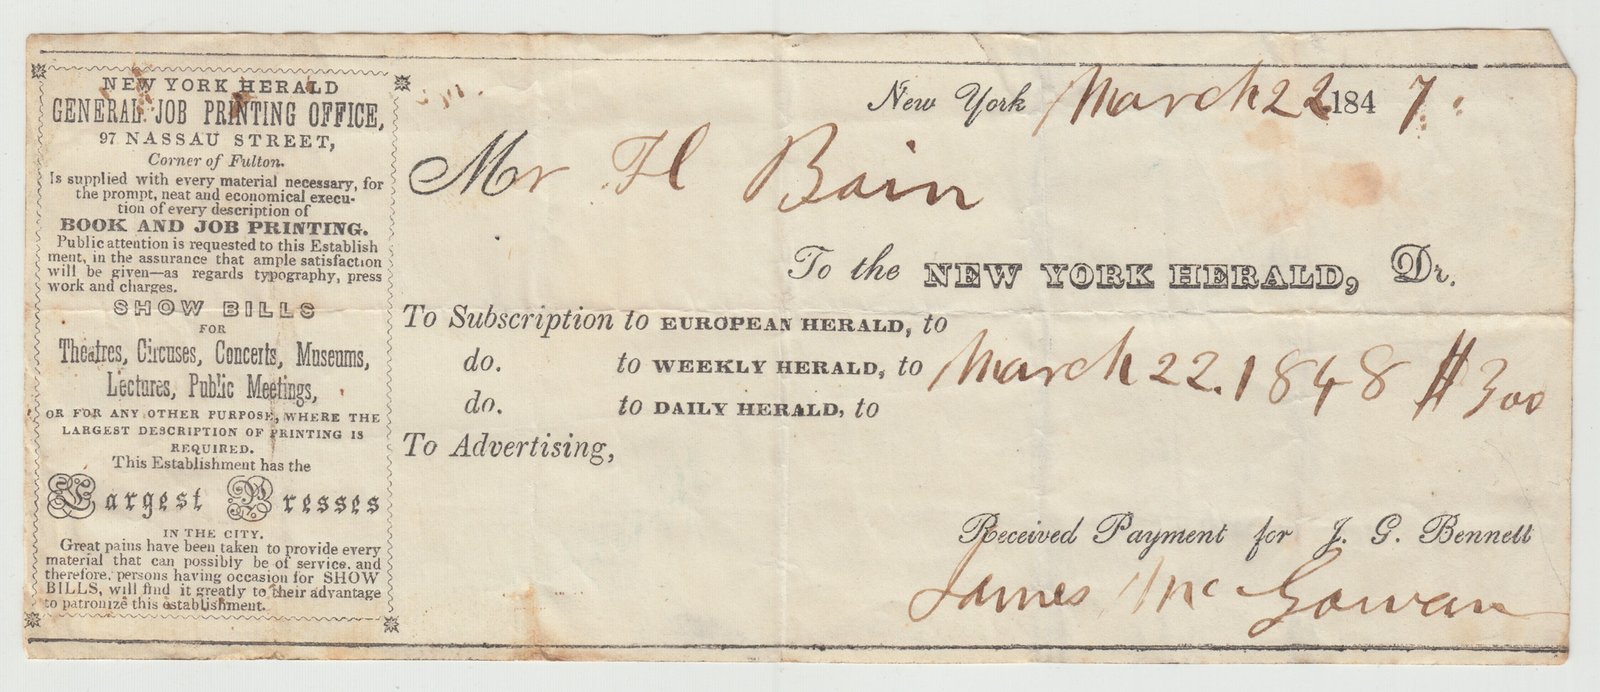 NEW YORK HERALD
GENERAL JOB PRINTING OFFICE,
97 NASSAU STREET,
Corner of Fulton.
Is supplied with every material necessary, for
the prompt, neat and economical execu-
tion of every description of
BOOK AND JOB PRINTING.
Public attention is requested to this Establish
ment, in the assurance that ample satisfaction
will be given—as regards typography, press
work and charges.
SHOW BILLS
FOR
Theatres, Circuses, Concerts, Museums,
Lectures, Public Meetings,
OR FOR ANY OTHER PURPOSE, WHERE THE
LARGEST DESCRIPTION OF PRINTING IS
REQUIRED.
This Establishment has the
Largest Presses
IN THE CITY.
Great pains have been taken to provide every
material that can possibly be of service, and
therefore, persons having occasion for SHOW
BILLS, will find it greatly to their advantage
to patronize this establishment.
New York March 22 1847
Mr H Bain
To the NEW YORK HERALD, Dr.
To Subscription to EUROPEAN HERALD, to
do. to WEEKLY HERALD, to March 22. 1848 $300
do. to DAILY HERALD, to
To Advertising,
Received Payment for J. G. Bennett
James McGowan